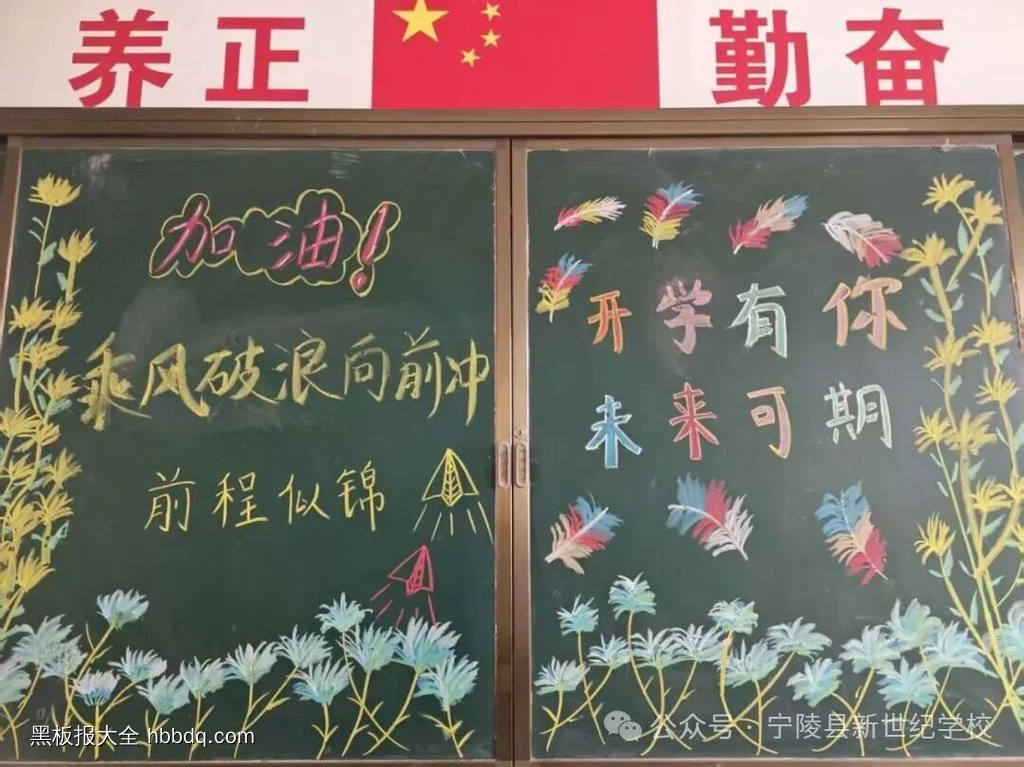 养正 勤奋
加油！
乘风破浪向前冲
前程似锦
开学有你
未来可期
黑板报大全 hbbdq.com
公众号·宁陵县新世纪学校